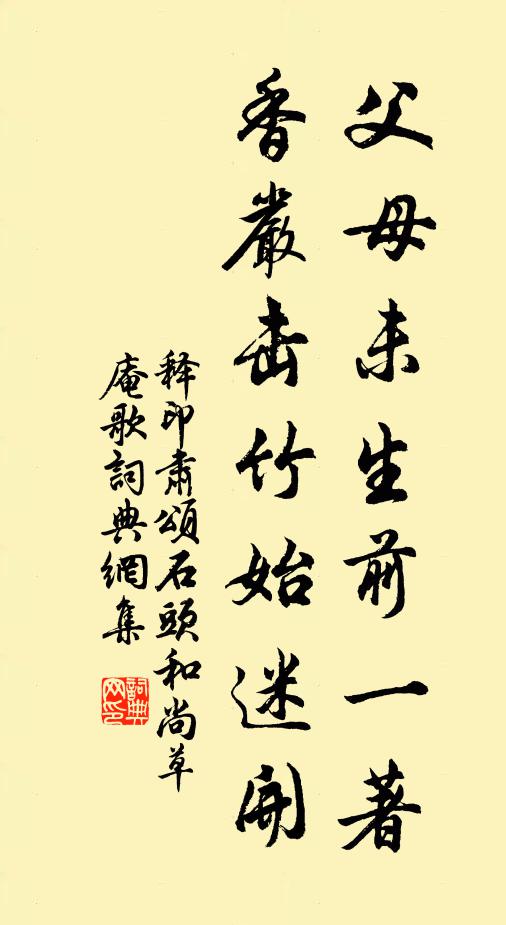 父母未生前一著
香嚴击竹始迷開
释印肅頌石頭和尚草
庵歌詞典網集
詞典
网印